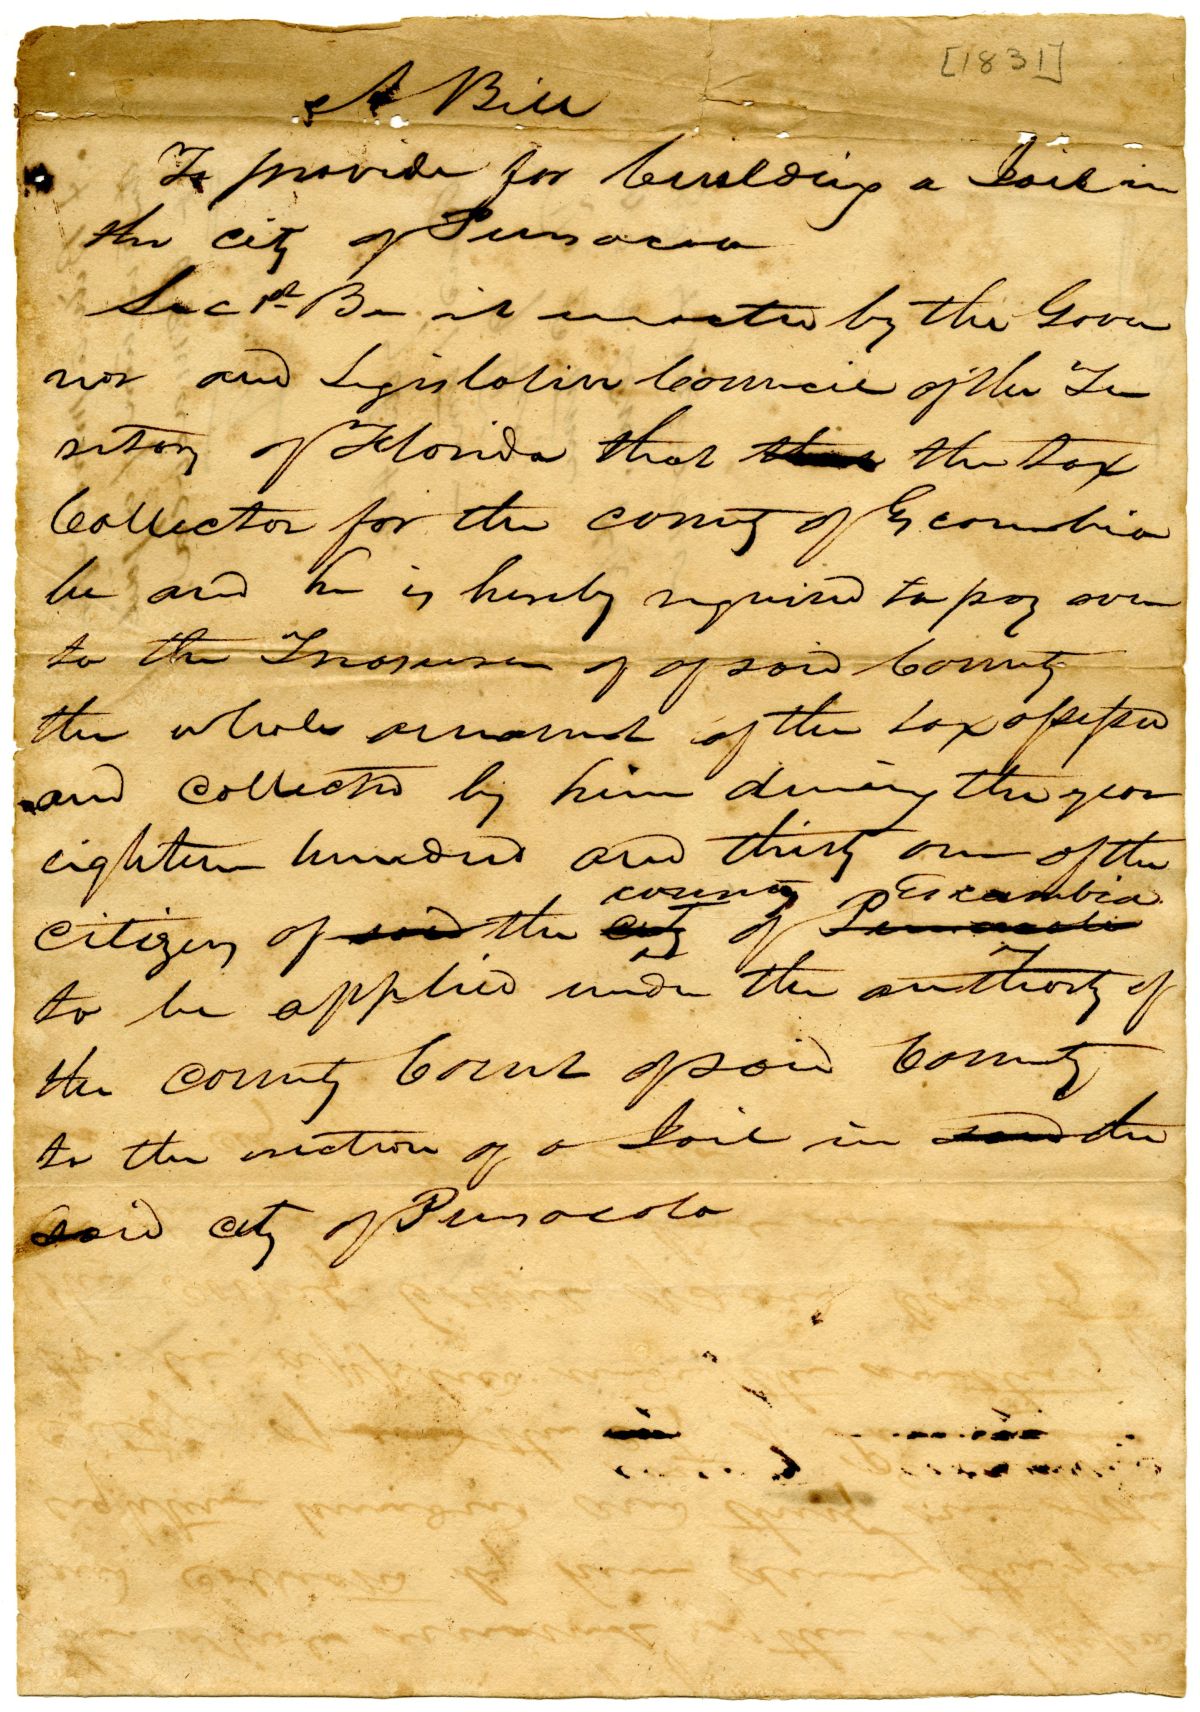 [1831]
A Bill
To provide for building a Jail in
the city of Pensacola
Sec 1st Be it enacted by the Gover
nor and Legislative Council of the Ter
ritory of Florida that the tax
Collector for the county of Escambia
be and he is hereby required to pay over
to the Treasurer of of said County
the whole amount of the tax assessed
and collected by him during the year
eighteen hundred and thirty one of the
county Escambia
citizens of said the city of Pensacola
to be applied under the authority of
the county Court of said County
to the erection of a Jail in said the
said city of Pensacola